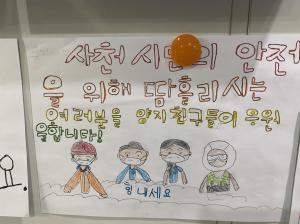 사천 시민의 안전
을 위해 땀흘리시는
여러분을 양지친구들이 응원
을합니다!
힘내세요